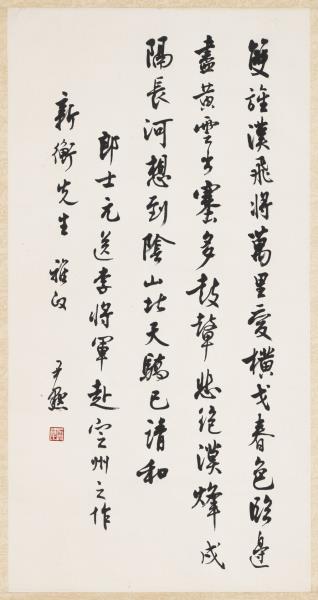 雙旌漢飛將萬里受橫戈春色臨邊
盡黃雲出塞多鼓鼙悲絕漠烽戍
隔長河想到陰山北天驕已請和
郎士元送李將軍赴定州之作
新衡先生雅政 尹默